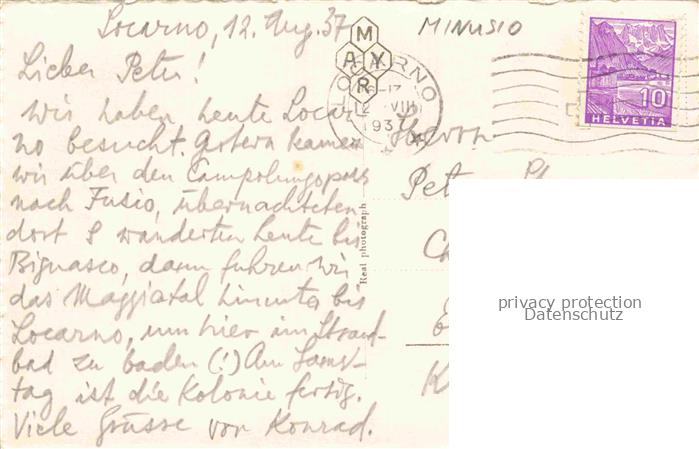 Locarno, 12. Aug. 37
MINUSIO
Lieber Peter!
Wir haben heute Locar-
no besucht. Gestern kamen
wir über den Campolungopass
nach Fusio, übernachteten
dort & wanderten heute bis
Bignasco, dann fuhren wir
das Maggiatal hinunter bis
Locarno, um hier im Strand-
bad zu baden (!) Am Sams-
tag ist die Kolonie fertig.
Viele Grüsse von Konrad.
MAYR
Real photograph
LOCARNO
12 VIII
1937
10
HELVETIA
Herrn
Pet
privacy protection
Datenschutz